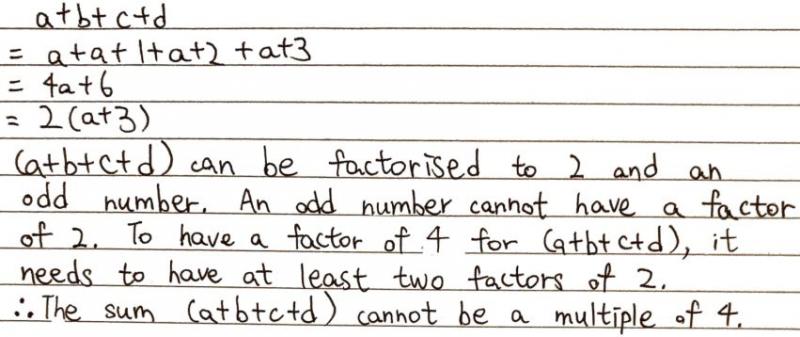 a+b+c+d
= a+a+1+a+2+a+3
= 4a+6
= 2(a+3)
(a+b+c+d) can be factorised to 2 and an
odd number. An odd number cannot have a factor
of 2. To have a factor of 4 for (a+b+c+d), it
needs to have at least two factors of 2.
∴ The sum (a+b+c+d) cannot be a multiple of 4.